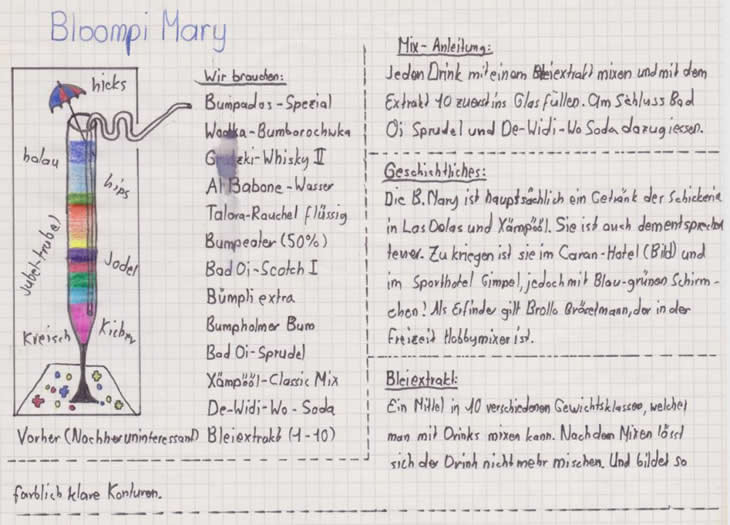 Bloompi Mary
hicks
halau
hips
Jubel-trubel
Jodel
Kreisch
Kicher
Vorher (Nachher uninteressant)
Wir brauchen:
Bumpados-Spezial
Wodka-Bumborochwka
Whisky II
Al Babone-Wasser
Talora-Rauchel flüssig
Bumpeater (50%)
Bad Oi-Scotch I
Bümpli extra
Bumpholmer Bum
Bad Oi-Sprudel
Xämpööl-Classic Mix
De-Widi-Wo-Soda
Bleiextrakt (1-10)
Mix-Anleitung:
Jeden Drink mit einem Bleiextrakt mixen und mit dem
Extrakt 10 zuerst ins Glas füllen. Am Schluss Bad
Oi Sprudel und De-Widi-Wo Soda dazugiessen.
Geschichtliches:
Die B. Mary ist hauptsächlich ein Getränk der Schickeria
in Las Dolas und Xämpööl. Sie ist auch dementsprechen
teuer. Zu kriegen ist sie im Caran-Hotel (Bild) und
im Sporthotel Gimpel, jedoch mit Blau-grünen Schirm-
chen! Als Erfinder gilt Brollo Bröselmann, der in der
Freizeit Hobbymixer ist.
Bleiextrakt:
Ein Mittel in 10 verschiedenen Gewichtsklassen, welches
man mit Drinks mixen kann. Nach dem Mixen lässt
sich der Drink nicht mehr mischen. Und bildet so
farblich klare Konturen.